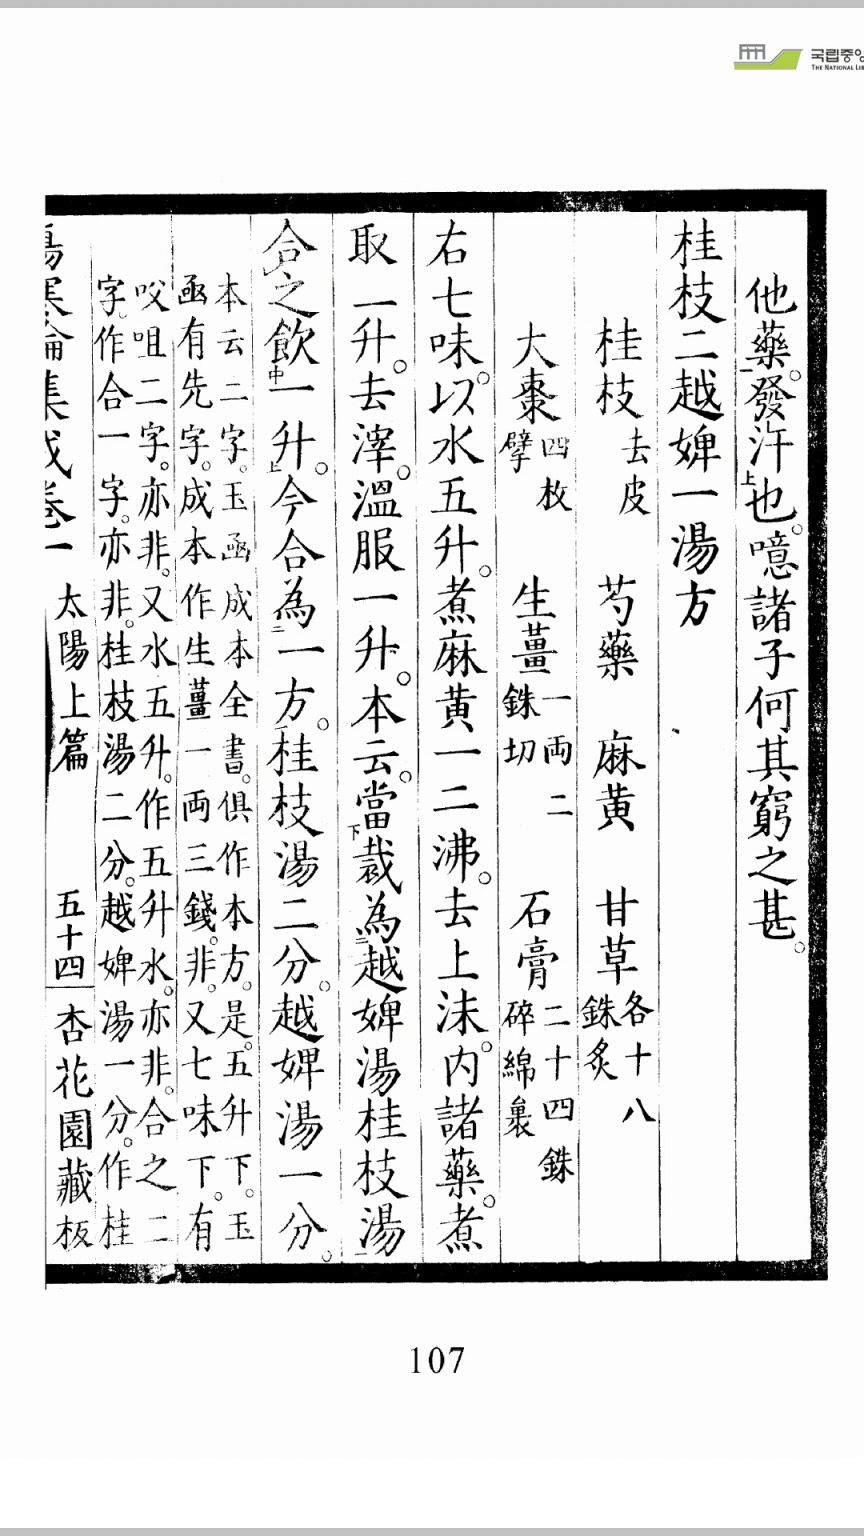 국립중앙
THE NATIONAL LIB
他藥。發汗也。噫諸子何其窮之甚。
桂枝二越婢一湯方
桂枝去皮 芍藥 麻黄 甘草各十八銖炙
大棗四枚擘 生薑一両二銖切 石膏二十四銖碎綿裹
右七味。以水五升。煮麻黄一二沸。去上沫。内諸藥。煮
取一升。去滓。溫服一升。本云。當裁為越婢湯桂枝湯
合之飲一升。今合為一方。桂枝湯二分。越婢湯一分。
本云二字。玉函成本全書。俱作本方。是。五升下。玉
函有先字。成本作生薑一両三錢。非。又七味下。有
㕮咀二字。亦非。又水五升。作五升水。亦非。合之二
字。作合一字。亦非。桂枝湯二分。越婢湯一分。作桂
傷寒論集成卷一 太陽上篇 五十四 杏花園藏板
107